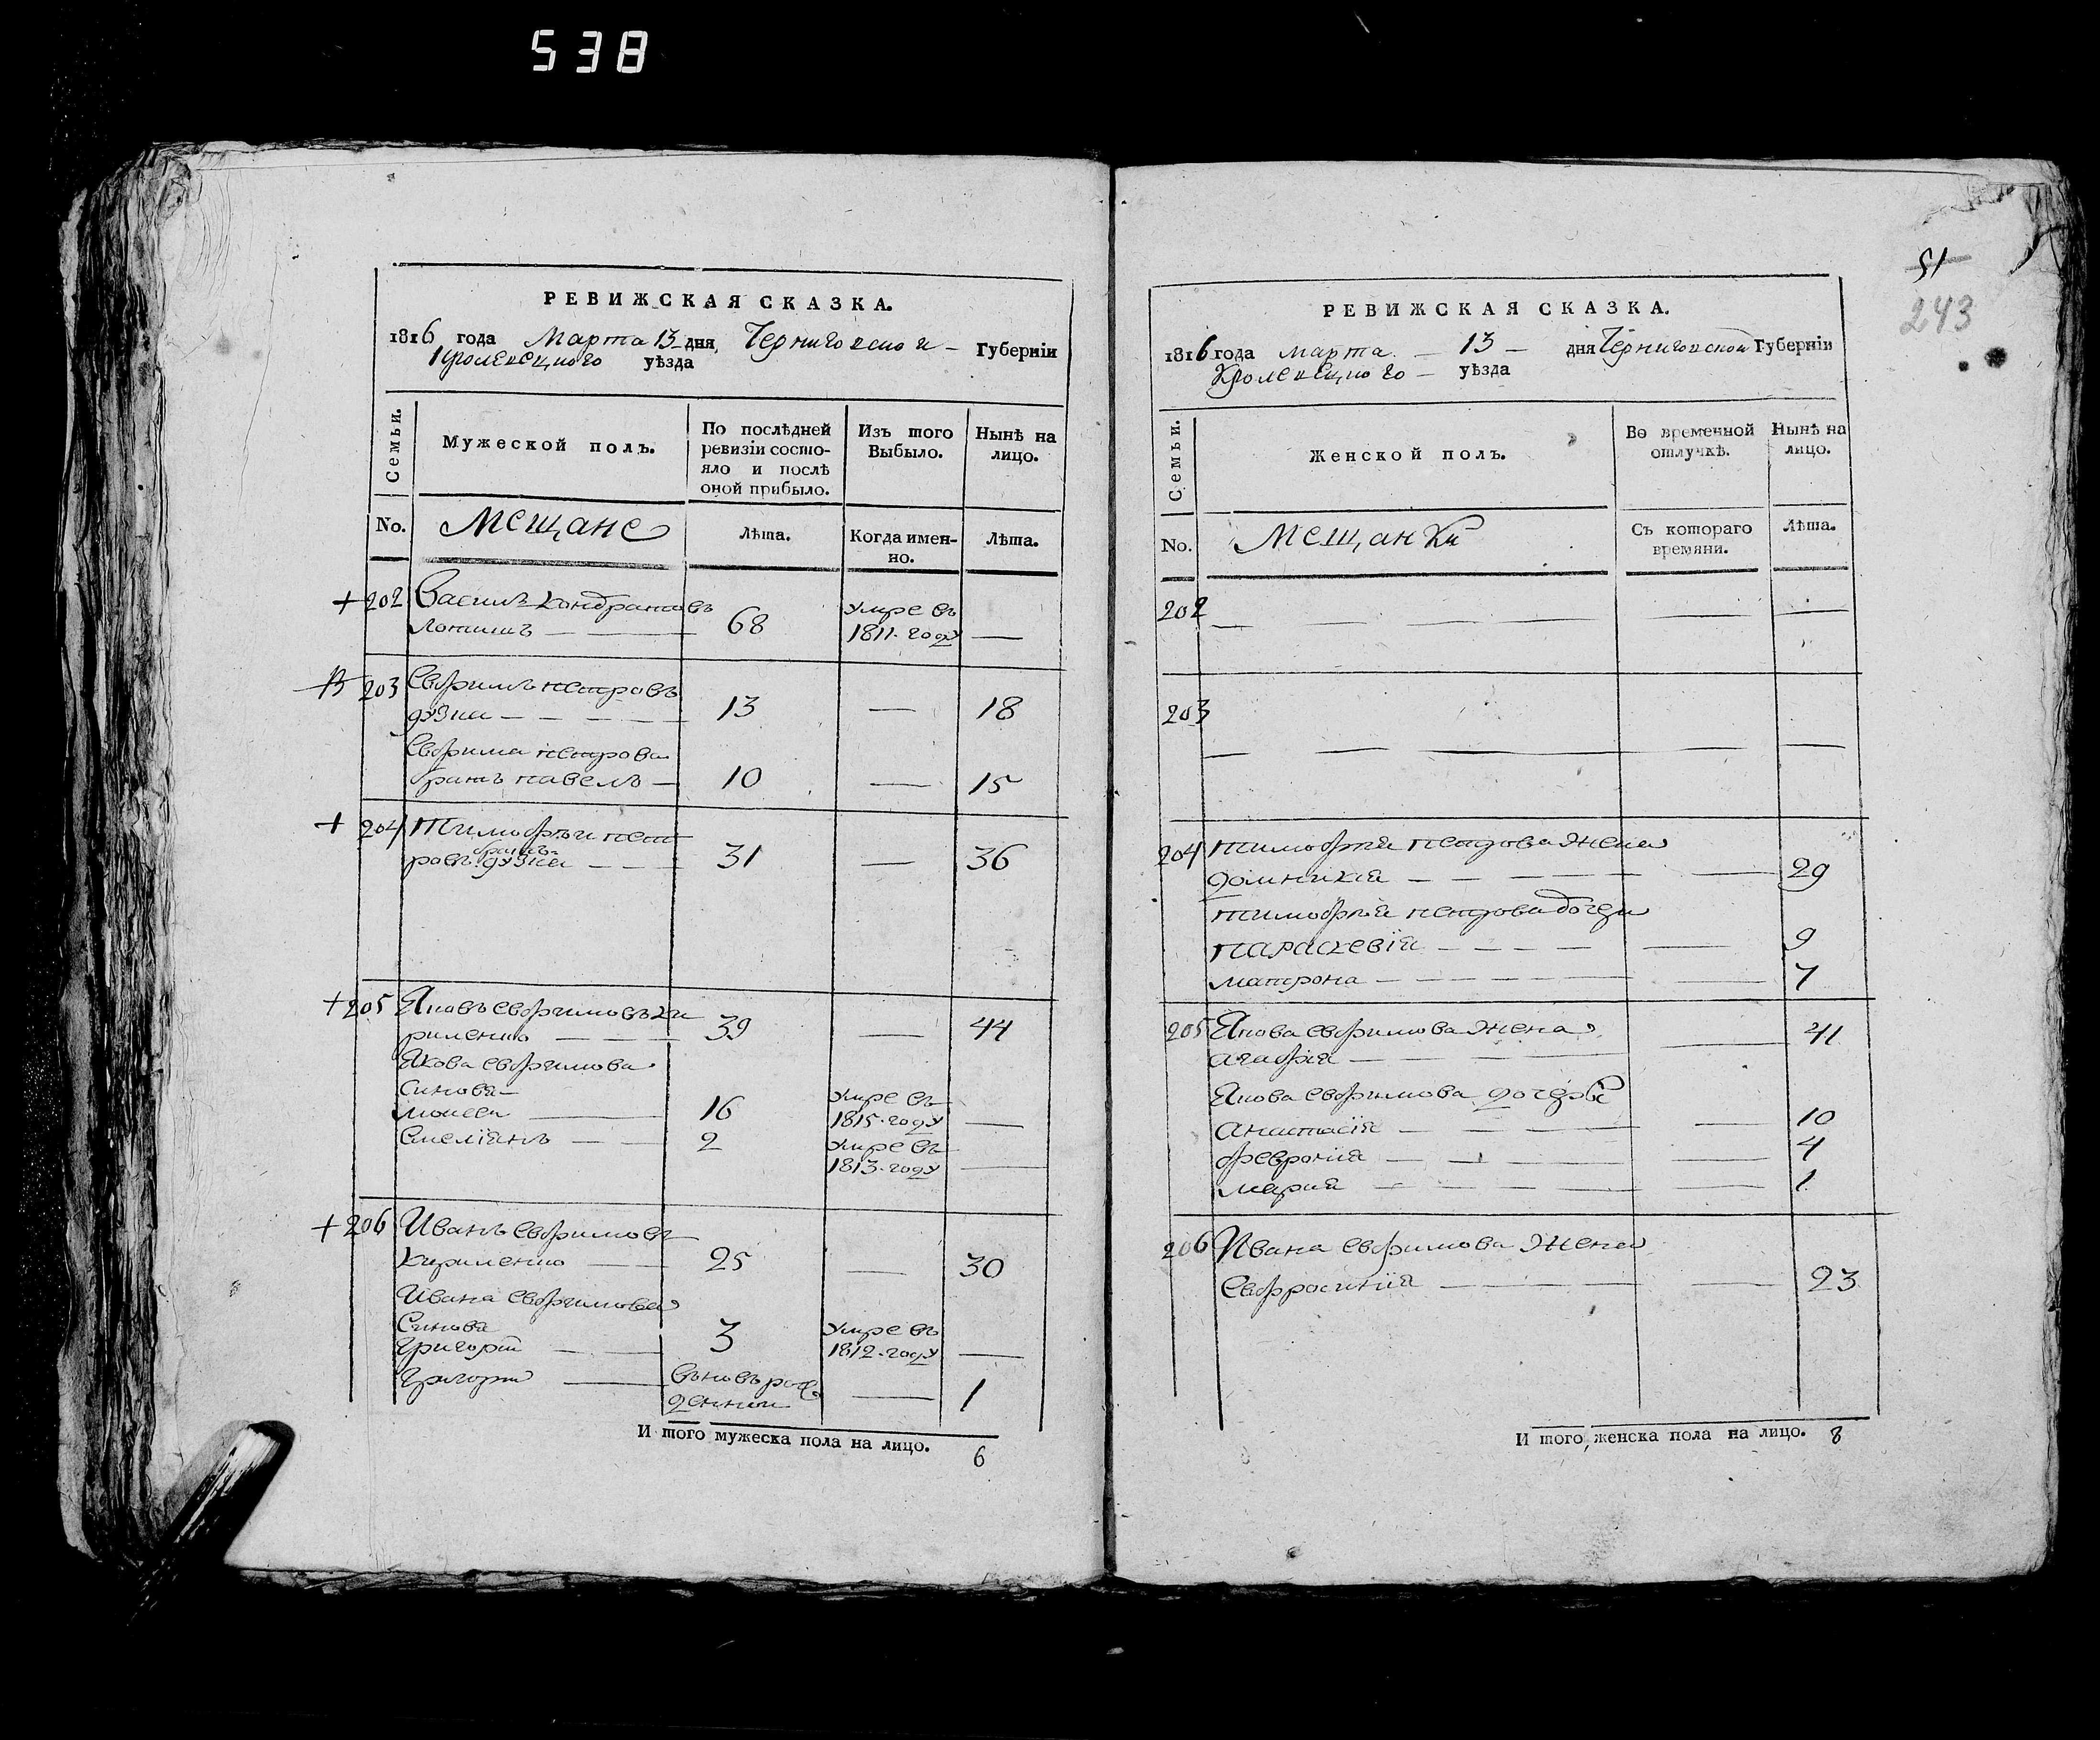 538
РЕВИЖСКАЯ СКАЗКА.
1816 года Марта 13 дня Черниговской Губерніи
Кролевецкого уѣзда
Семьи.
Мужеской полъ.
По послѣдней ревизіи состояло и послѣ оной прибыло.
Изъ того Выбыло.
Нынѣ на лицо.
No.
Мещане
Лѣта.
Когда именно.
Лѣта.
+ 202 Василь Кондратовъ
68 Умре въ 1811. году —
203 Евфимъ петровъ
дузка — 13 — 18
Евфима петрова
братъ павелъ — 10 — 15
+ 204 Тимофѣй пет
ровъ братъ дузка — 31 — 36
+ 205 Яковъ Евфимовъ ки
риленко — 39 — 44
Якова Евфимова
Синова
моисей — 16 Умре въ 1815. году —
Емеліянъ — 2 Умре въ 1813. году —
+ 206 Иванъ Евфимовъ
Кириленко — 25 — 30
Ивана Евфимова
Синова
Григорій — 3 Умре въ 1812. году —
Григорій — вновь рож
денний — 1
И того мужеска пола на лицо. 6
51
243
РЕВИЖСКАЯ СКАЗКА.
1816 года марта — 13 — дня Черниговской Губерніи
Кролевецкого — уѣзда
Семьи.
Женской полъ.
Во временной отлучкѣ.
Нынѣ на лицо.
No.
Мещанки
Съ котораго времяни.
Лѣта.
202 — — — —
203
— — — —
204 тимофѣя петрова жена
домникія — — 29
тимофѣя петрова дочери
параскевія — — 9
матрона — — 7
205 Якова Евфимова жена
агафія — — 41
Якова Евфимова дочеры
анастасія — — 10
феврония — — 4
марія — — 1
206 Ивана Евфимова жена
Евфросинія — — 23
И того женска пола на лицо. 8